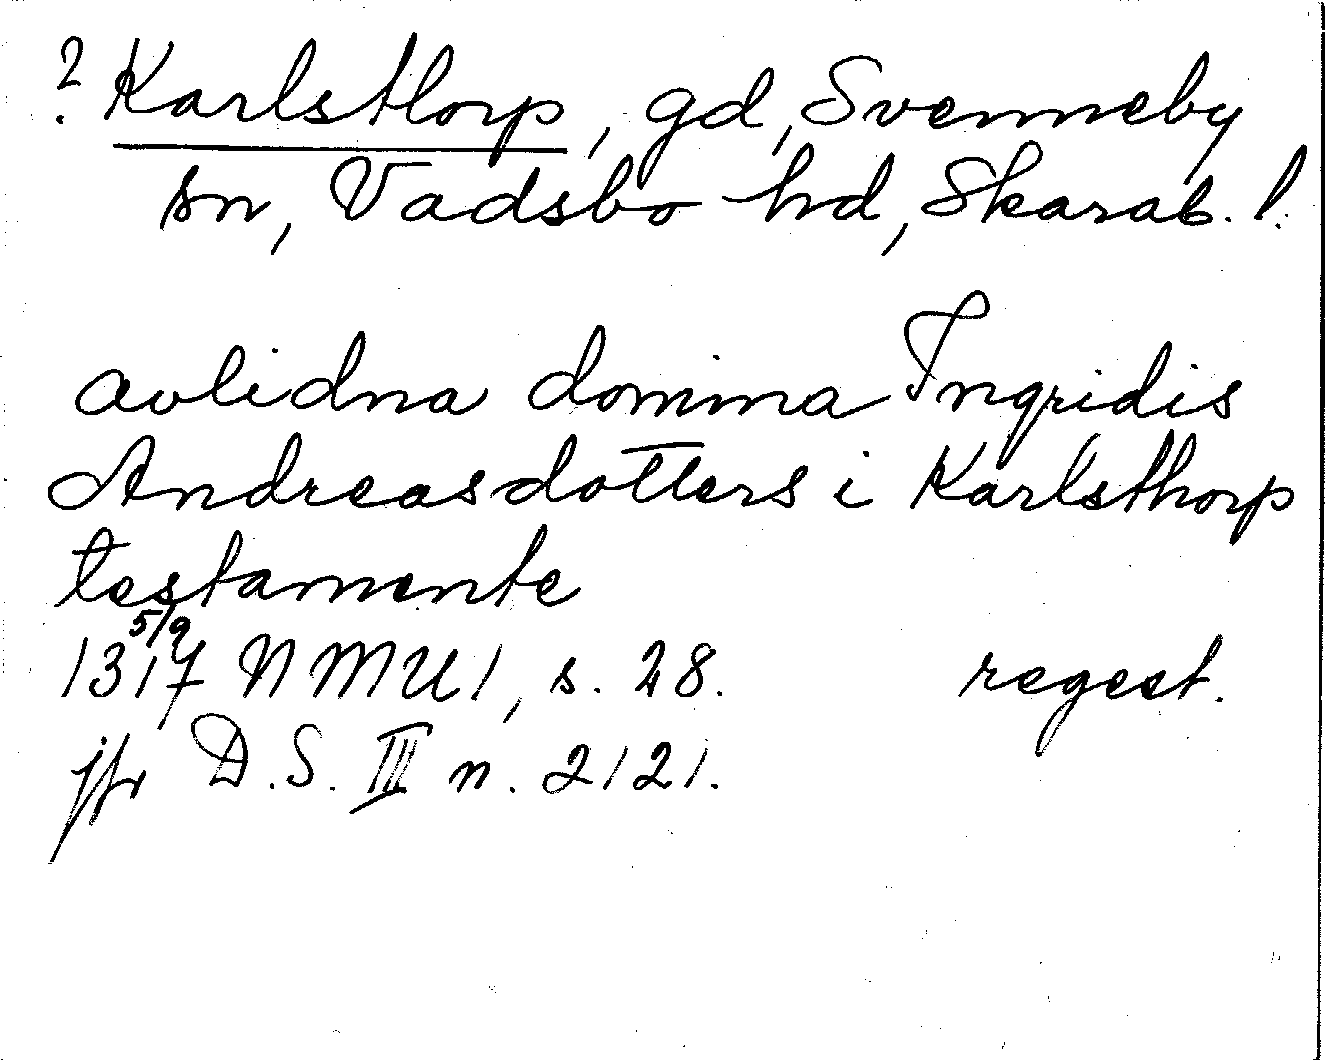 ? Karlsthorp, gd, Svenneby
sn, Vadsbo hd, Skarab. l.
avlidna domina Ingridis
Andreasdotters i Karlsthorp
testamente
1317 5/9 NMU 1, s. 28. regest.
jfr D.S. III n. 2121.